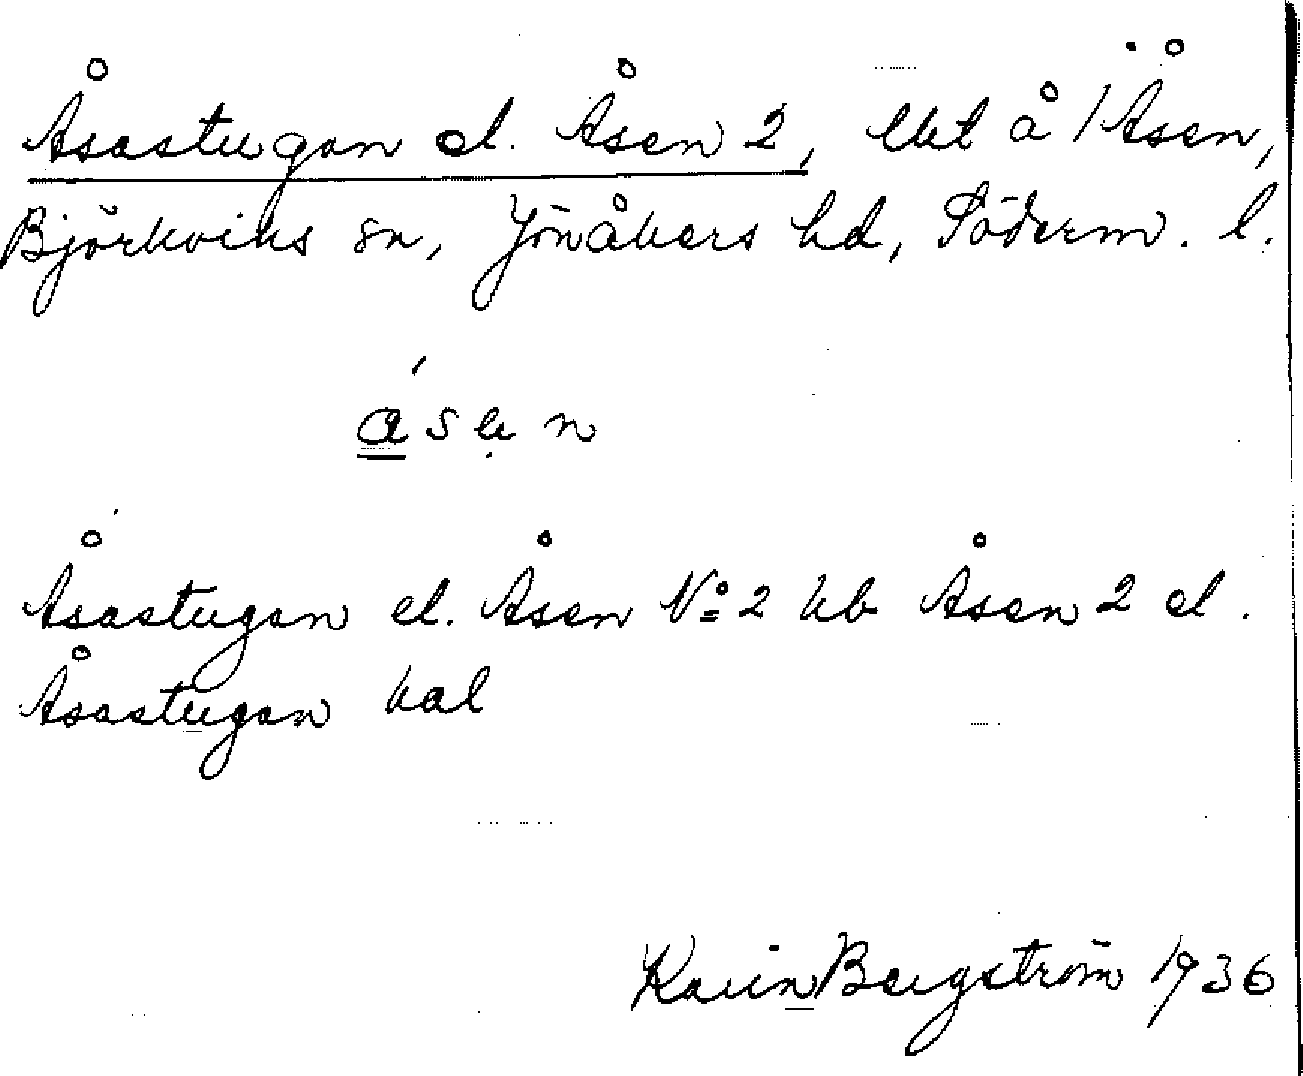 Åsastugan el. Åsen 2, lht å 1 Åsen,
Björkviks sn, Jönåkers hd, Söderm. l.
åsen
Åsastugan el. Åsen No 2 kb Åsen 2 el.
Åsastugan kal
Karin Bergström 1936